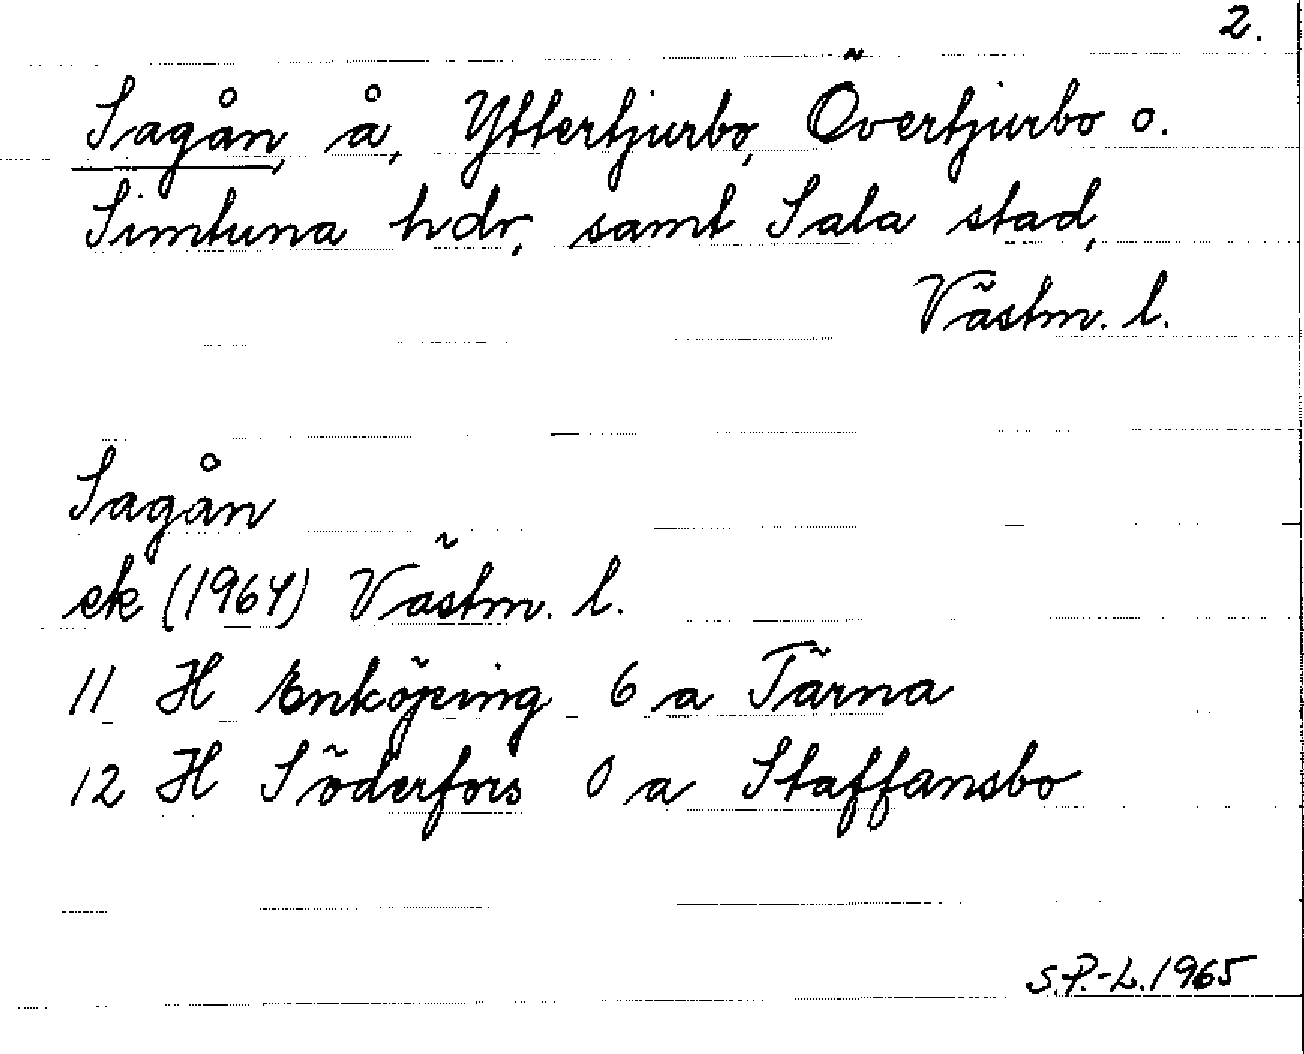 2.
Sagån, å, Yttertjurbo, Övertjurbo o.
Simtuna hdr, samt Sala stad,
Västm. l.
Sagån
ek (1964) Västm. l.
11 H Enköping 6 a Tärna
12 H Söderfors 0 a Staffansbo
S.P.-L. 1965